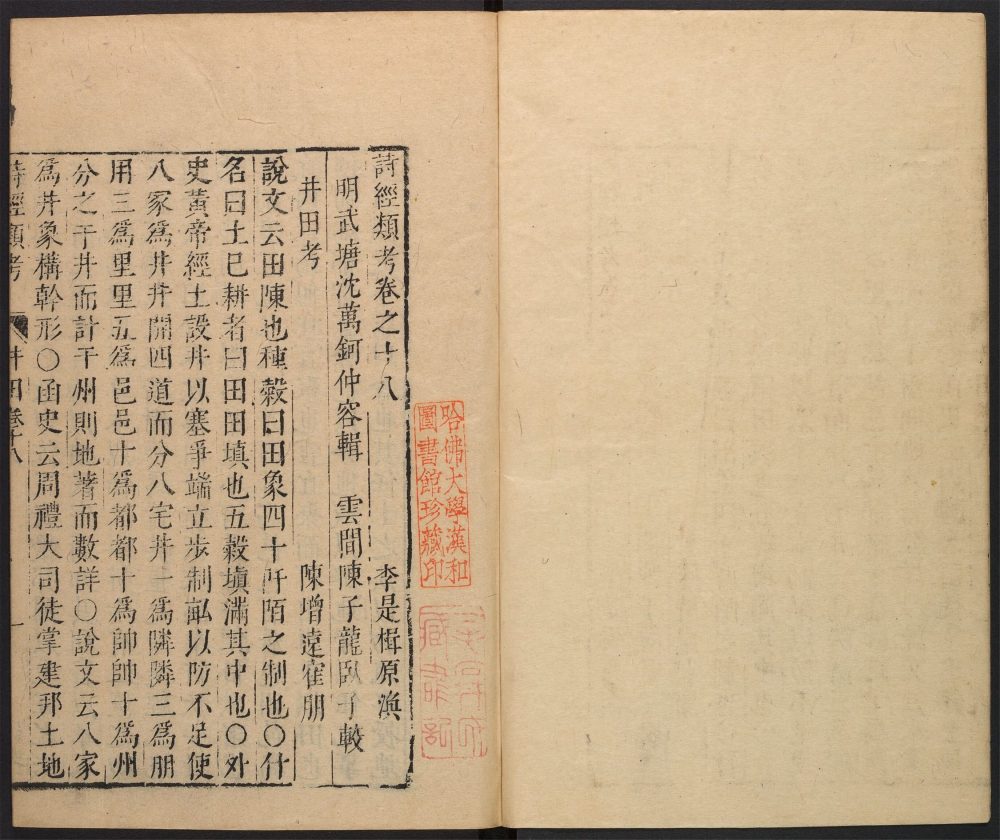 詩經類考卷之十八
李是楫原渙
明武塘沈萬鈳仲容輯
雲間陳子龍臥子較
陳增遠寉朋
井田考
說文云田陳也種糓曰田象四十阡陌之制也〇什
名曰土已耕者曰田田塡也五糓塡滿其中也〇外
史黃帝經土設井以塞爭端立步制畝以防不足使
八家爲井井開四道而分八宅井一爲隣隣三爲朋
用三爲里里五爲邑邑十爲都都十爲帥帥十爲州
分之于井而計于州則地著而數詳〇說文云八家
爲井象構幹形〇函史云周禮大司徒掌建邦土地
詩經類考
井田卷十八
一
哈佛大學漢和
圖書館珍藏印
藏書記